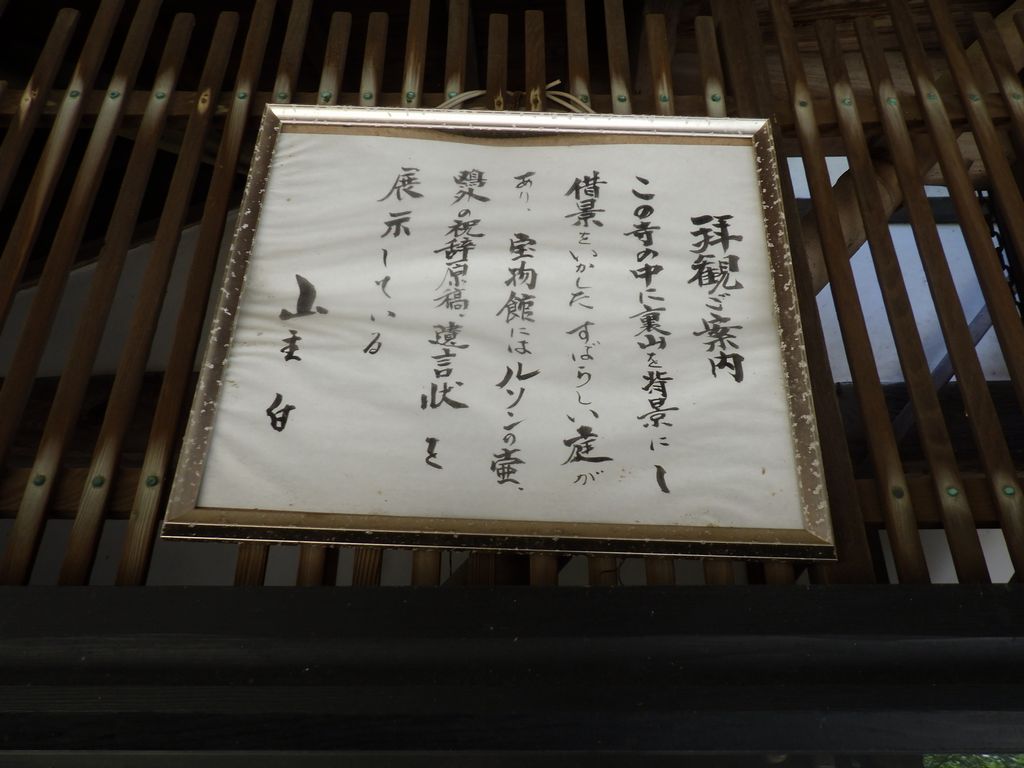 拝観ご案内
この寺の中に裏山を背景にし
借景をいかした すばらしい庭が
あり、宝物館にはルソンの壷、
鴎外の祝辞原稿、遺言状を
展示している
山主白